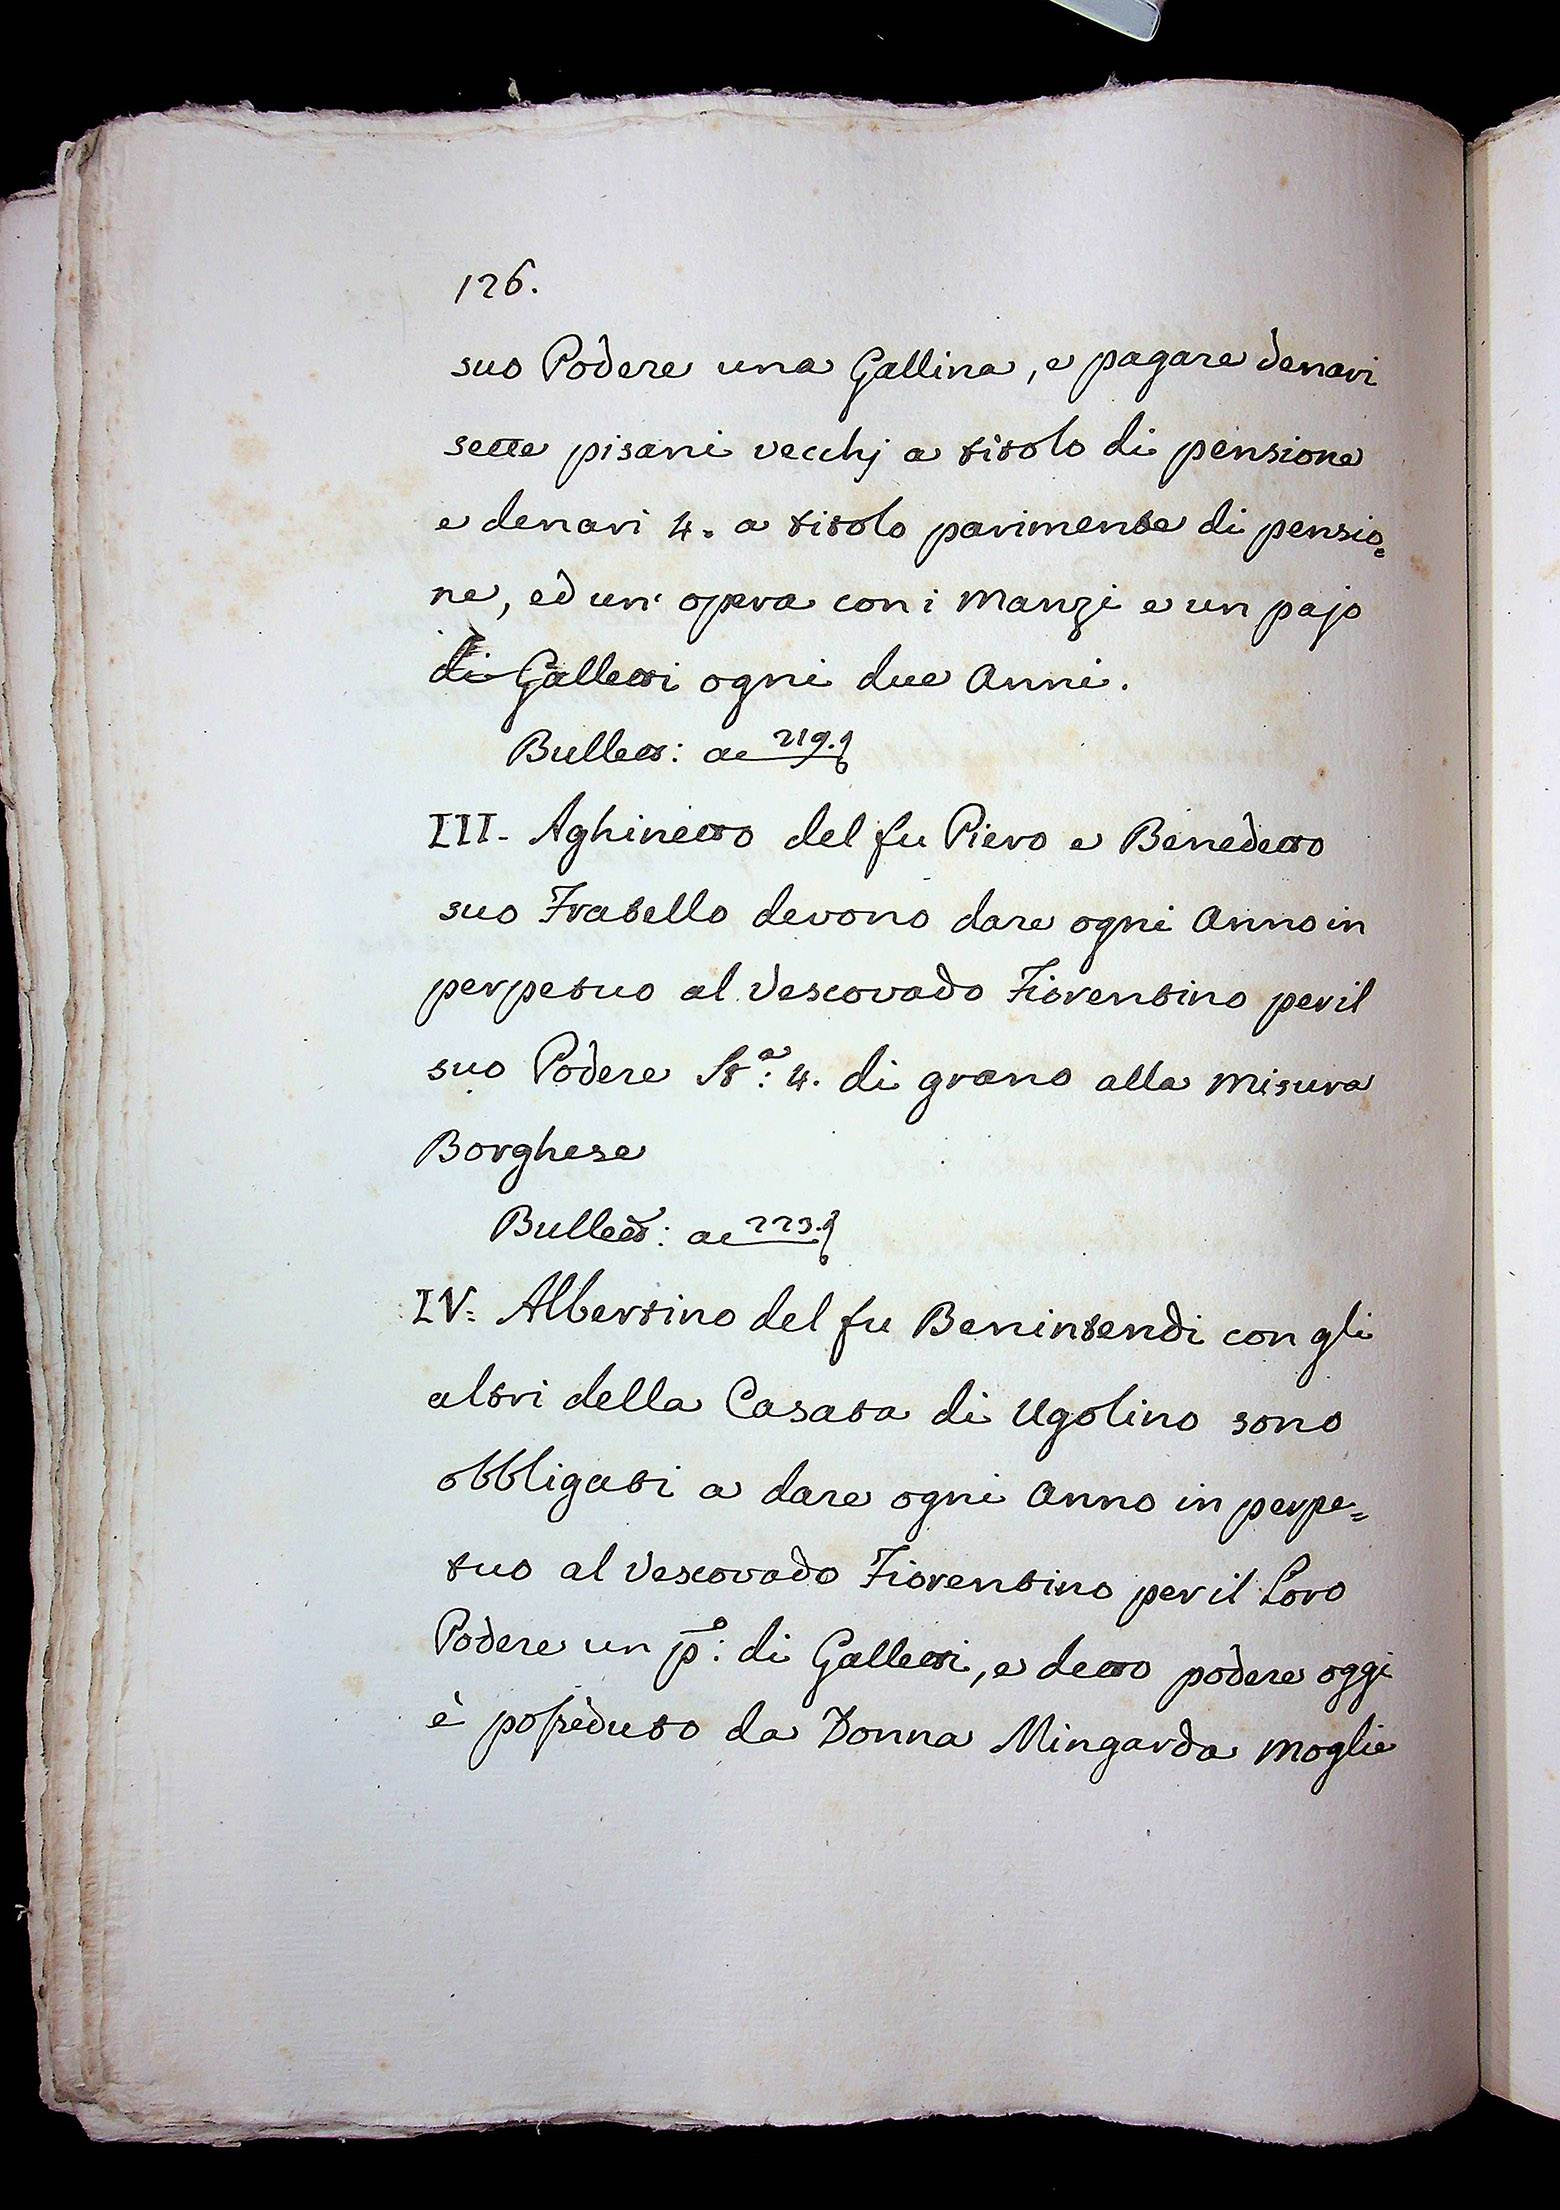 126.
suo Podere una Gallina, e pagare denari
sette pisani vecchj a titolo di pensione
e denari 4. a titolo parimente di pensio=
ne, ed un' opera con i Manzi e un pajo
di Galletti ogni due Anni.
Bullett: ac 219.
III. Aghinetto del fu Piero e Benedetto
suo Fratello devono dare ogni Anno in
perpetuo al Vescovado Fiorentino per il
suo Podere Stª: 4. di grano alla Misura
Borghese
Bullett: ac 223.
IV. Albertino del fu Benintendi con gli
altri della Casata di Ugolino sono
obbligati a dare ogni Anno in perpe=
tuo al Vescovado Fiorentino per il Loro
Podere un pº: di Galletti, e detto podere oggi
è posseduto da Donna Mingarda Moglie